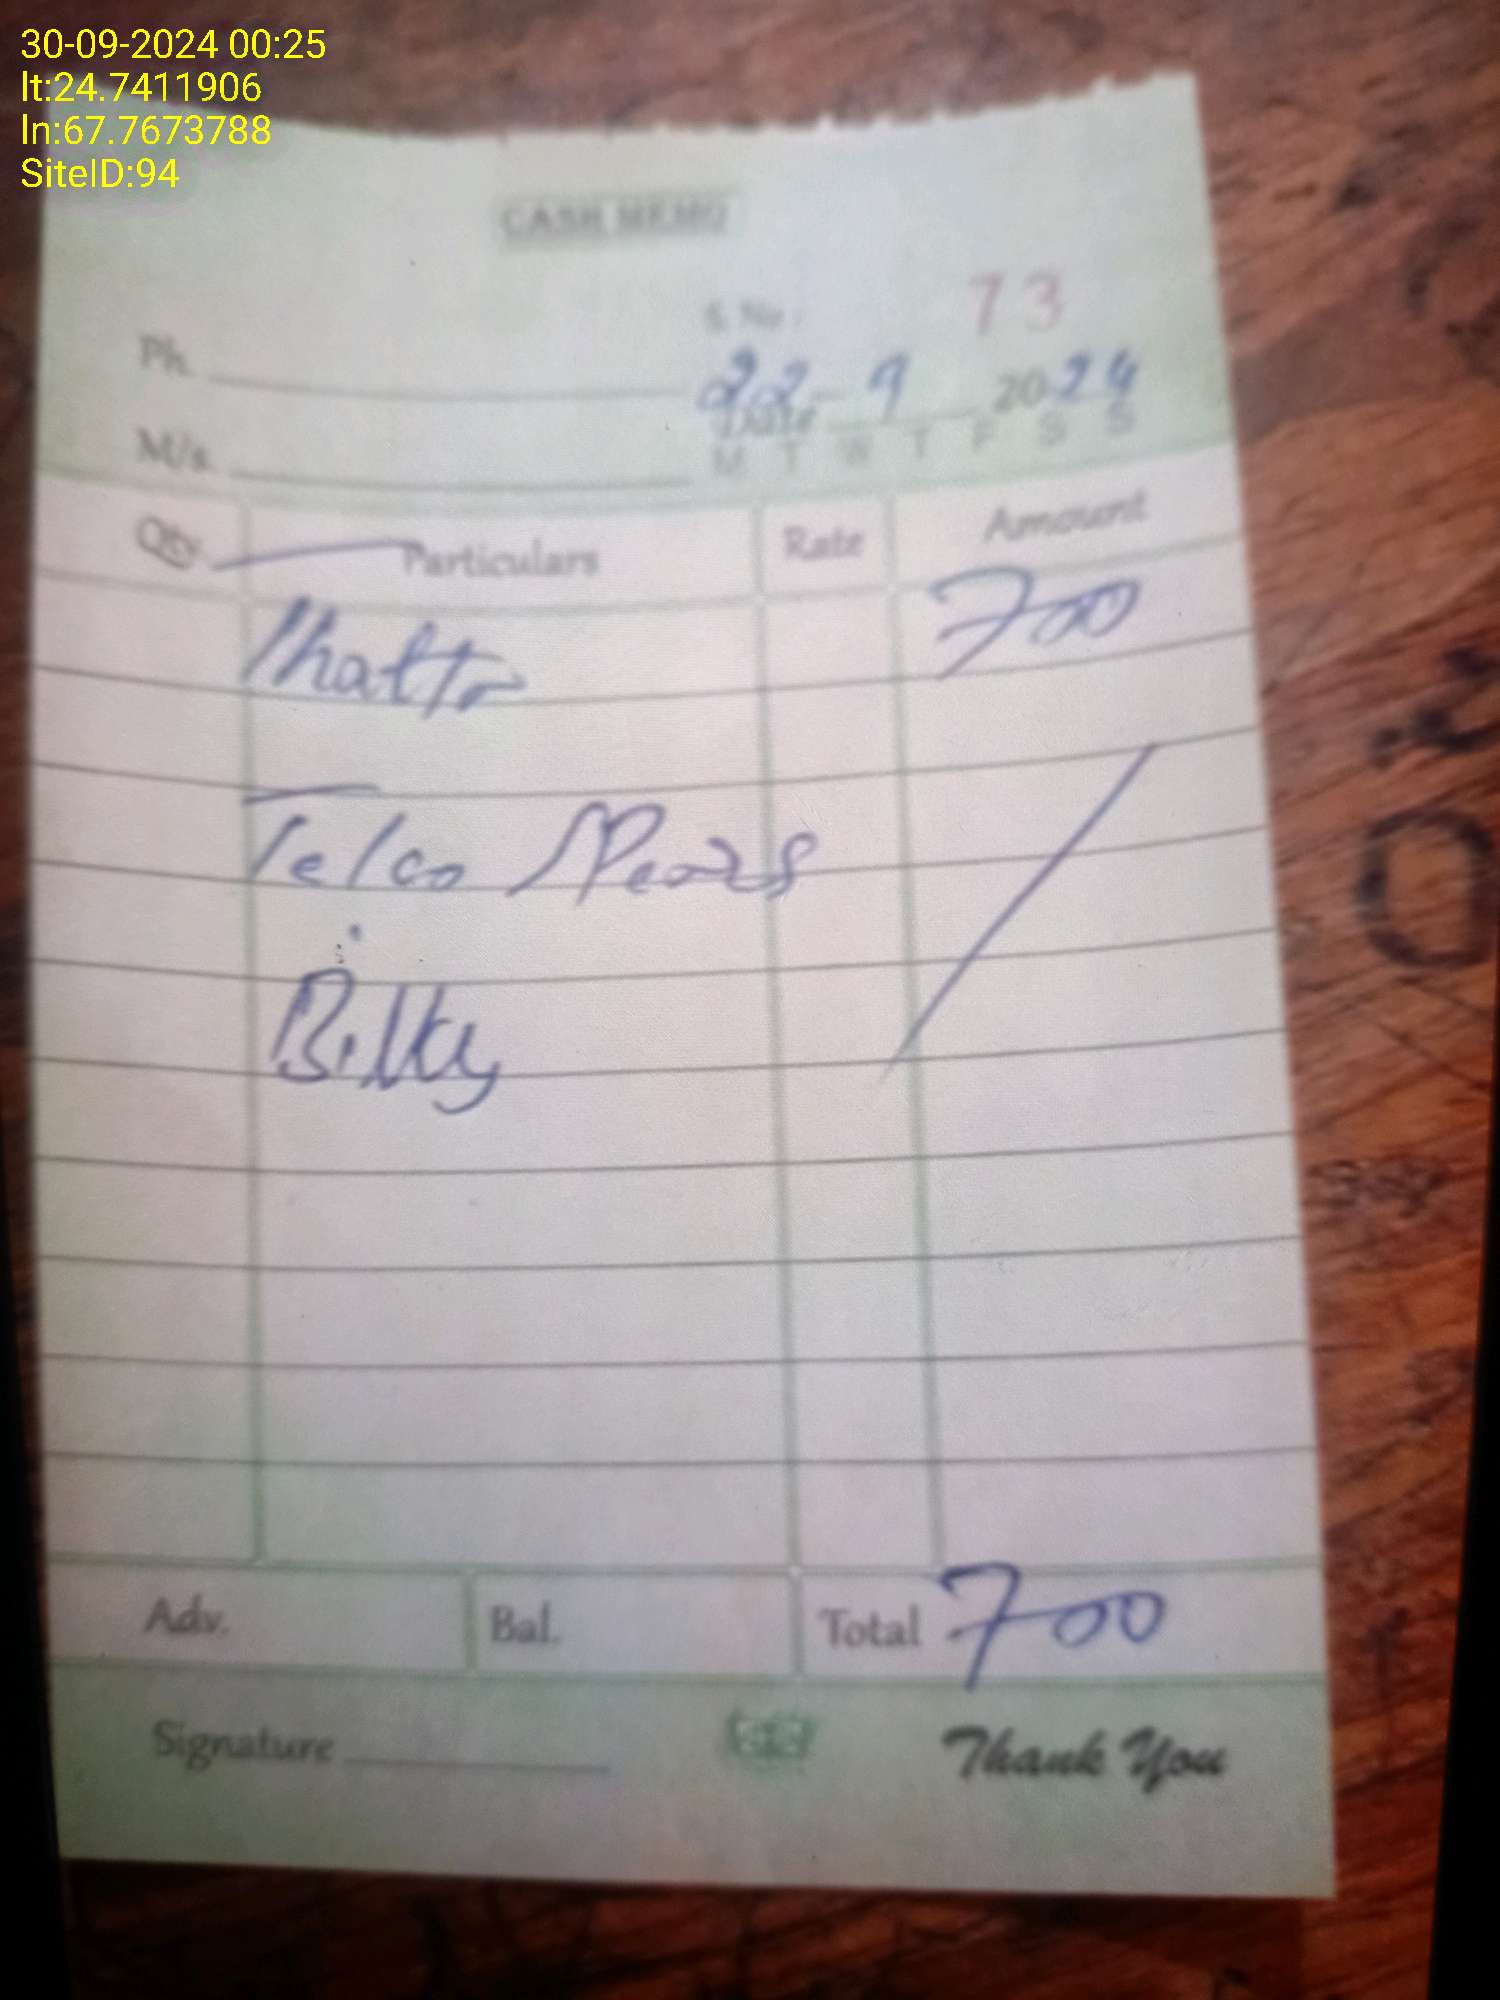 30-09-2024 00:25
lt:24.7411906
ln:67.7673788
SiteID:94
CASH MEMO
S.No. 73
Ph.
Date 22-9 2024
M/s.
M T W T F S S
Qty. Particulars Rate Amount
Thatta 700
Telco
Bilty
Adv. Bal. Total 700
Signature Thank You